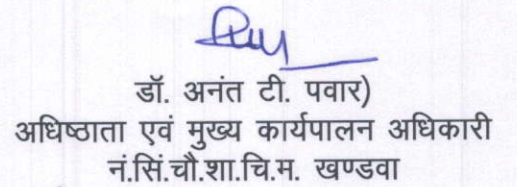 डॉ. अनंत टी. पवार)
अधिष्ठाता एवं मुख्य कार्यपालन अधिकारी
नं.सिं.चौ.शा.चि.म. खण्डवा